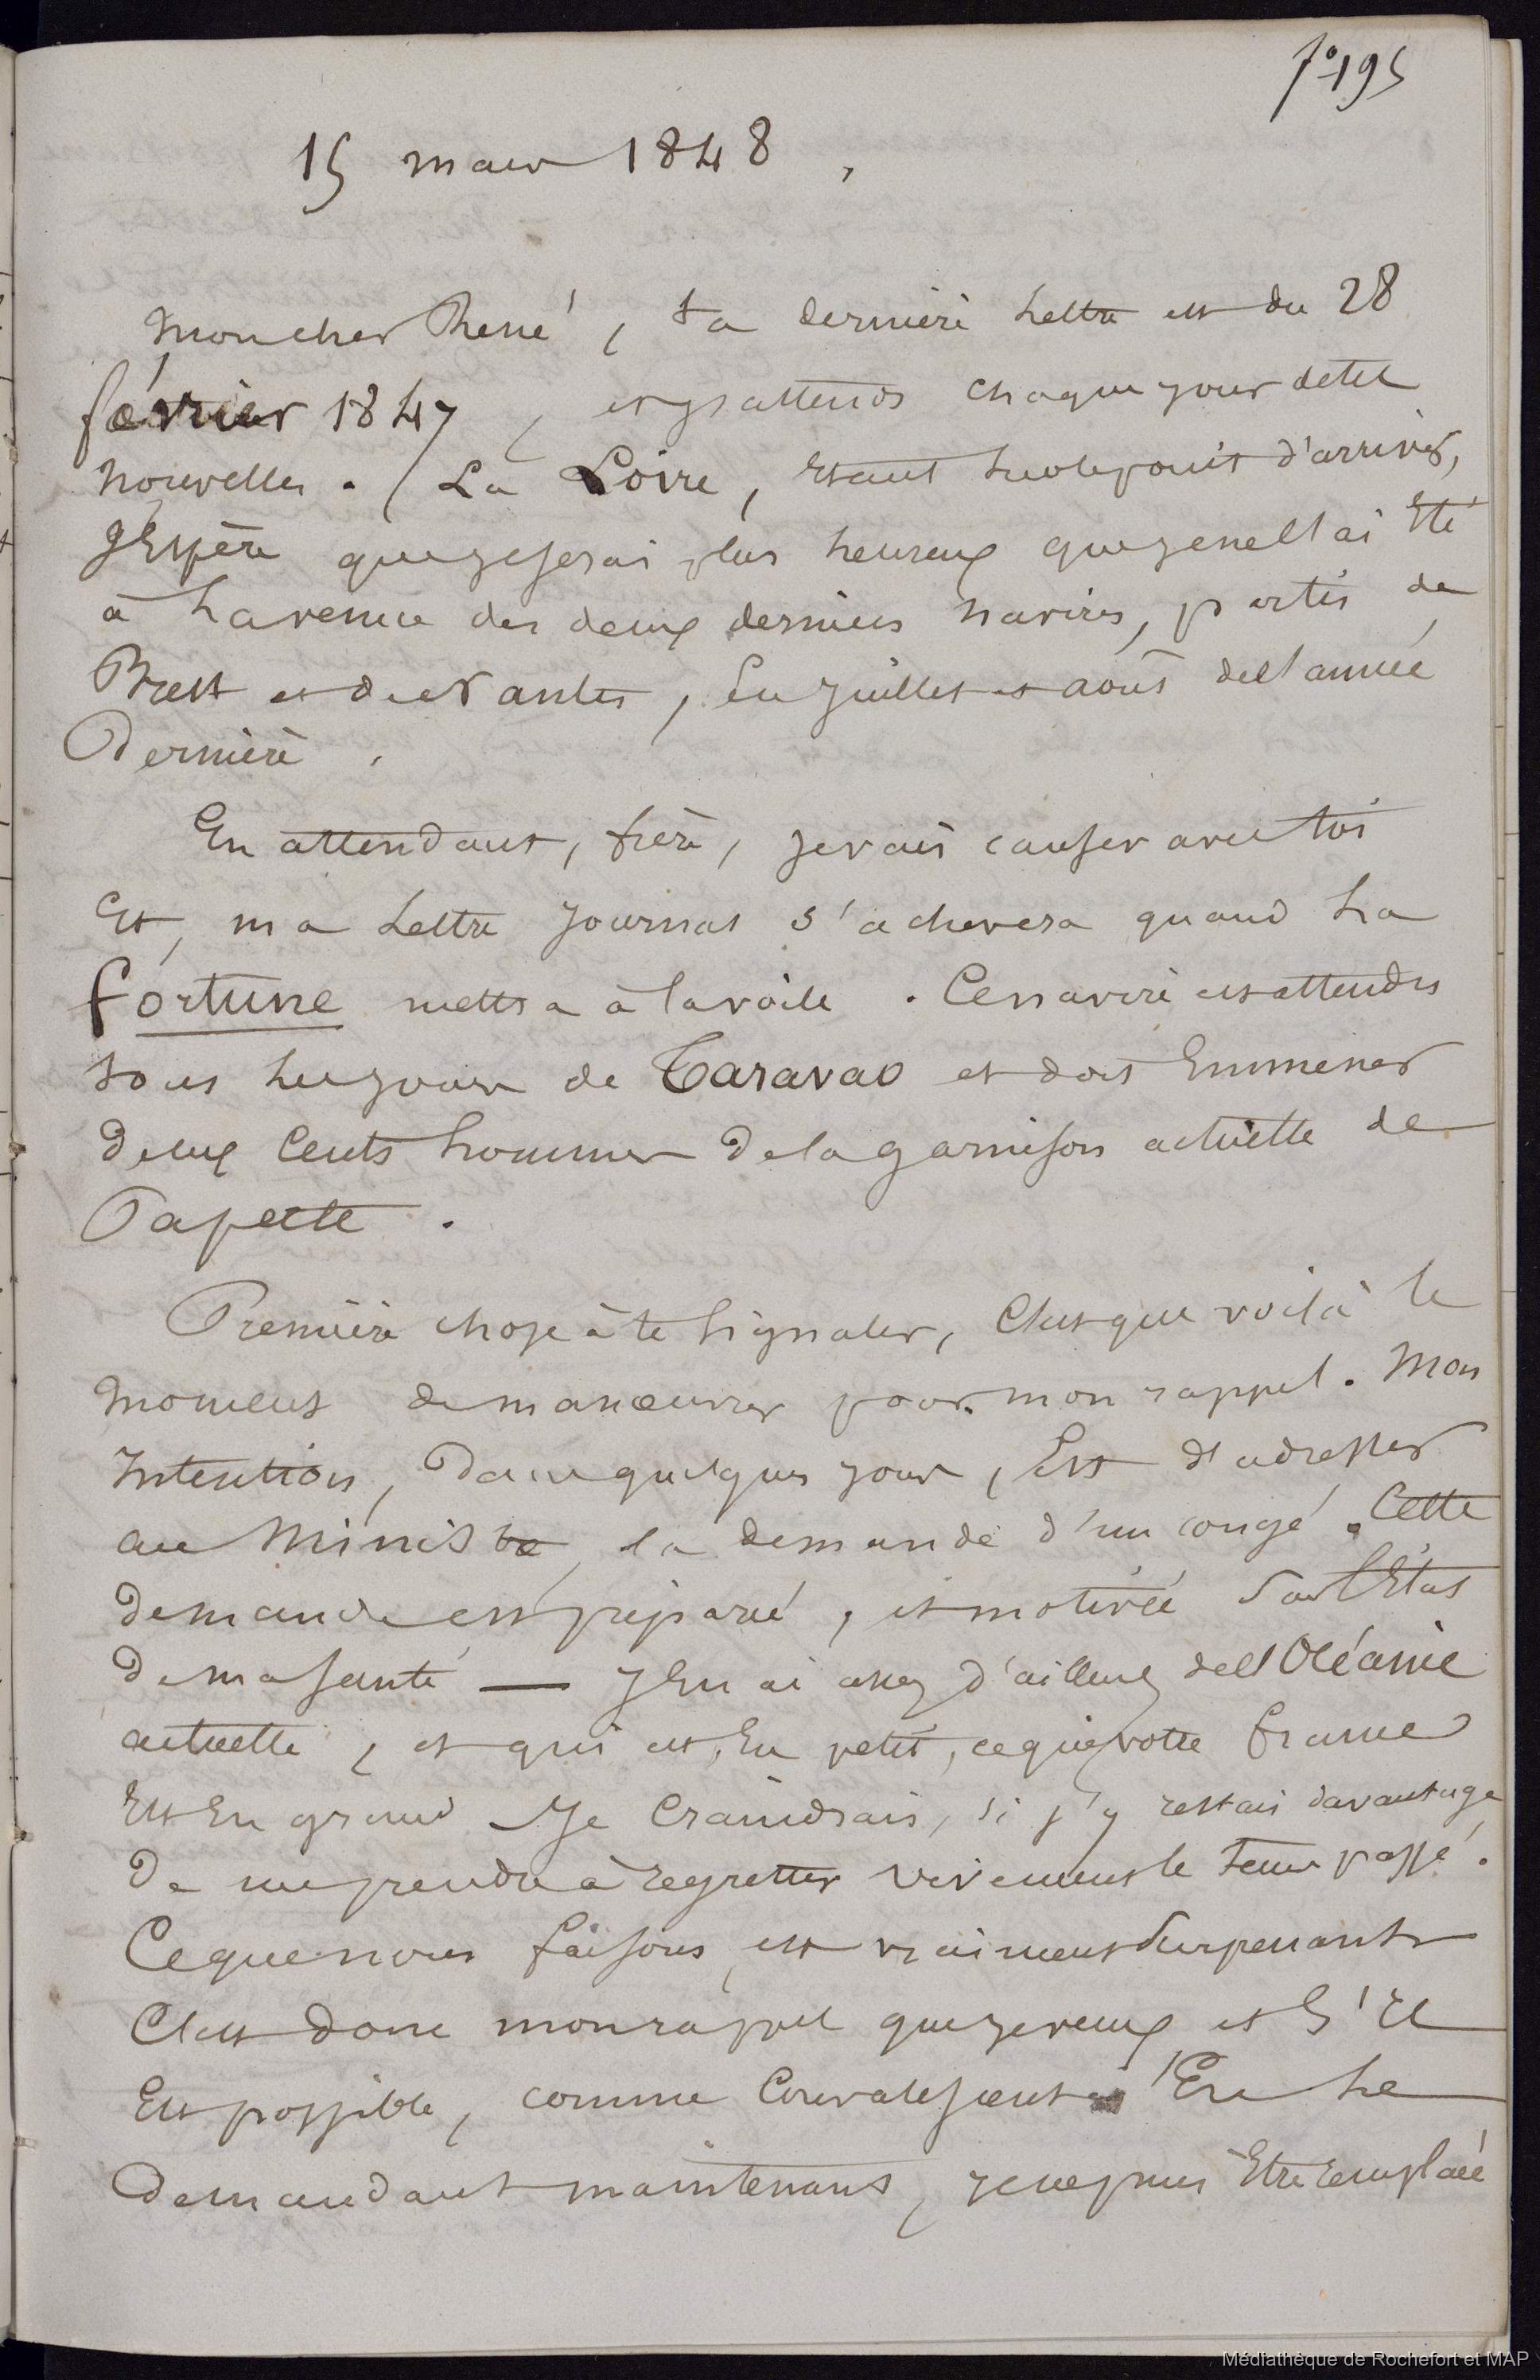 fo 195
15 mars 1848,
Mon cher René, ta dernière lettre est du 28
février 1847, et j'attends chaque jour de tes
nouvelles. La Loire, étant sur le point d'arriver,
j'espère que je serai plus heureux que je ne l'ai été
à la venue des deux derniers navires, partis de
Brest et de Nantes, en juillet et août de l'année
dernière.
En attendant, frère, je vais causer avec toi
et, ma lettre journal s'achèvera quand la
fortune mettra à la voile. Ce navire est attendu
tous les jours de Taravao et doit emmener
deux cents hommes de la garnison actuelle de
Papeete.
Première chose à te signaler, c'est que voilà le
moment de manœuvrer pour mon rappel. Mon
intention, dans quelques jours, est d'adresser
au Ministre, la demande d'un congé. Cette
demande est préparé, et motivée sur l'état
de ma santé — J'en ai assez d'ailleurs de l'Océanie
actuelle, et qui est, en petit, ce que votre france
est en grand Je craindrais, si j'y restais davantage
de me prendre à regretter vivement le temps passé.
Ce que nous faisons, est vraiment surprenant
C'est donc mon rappel que je veux et s'il
est possible, comme convalescent. En le
demandant maintenant, je ne puis être remplacé
Médiathèque de Rochefort et MAP